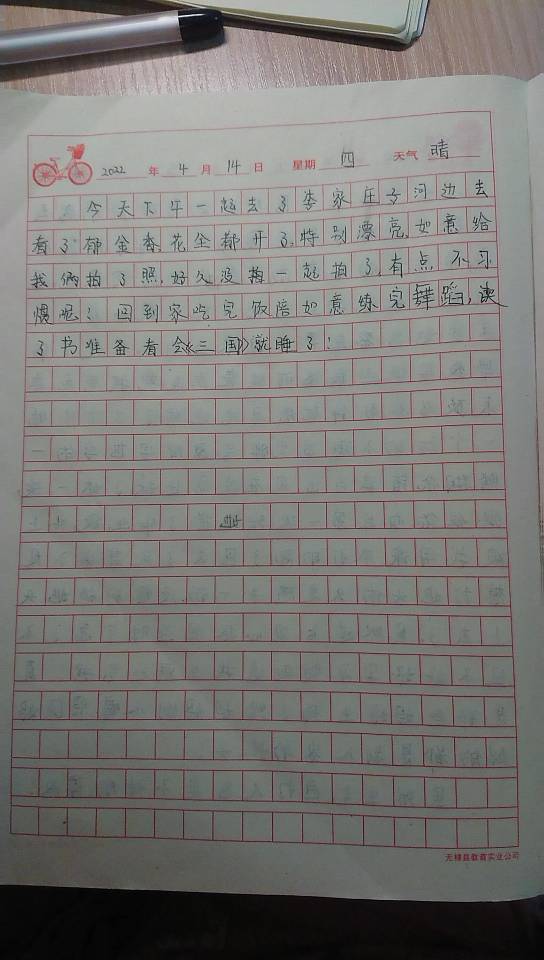 2022 年 4 月 14 日 星期 四 天气 晴
今天下午一起去了李家庄子河边去
看了郁金香,花全都开了,特别漂亮,如意给
我俩拍了照,好久没拍一起拍了,有点不习
惯呢!回到家吃完饭陪如意练完舞蹈,读
了书准备看会《三国》就睡了!
无棣县教育实业公司